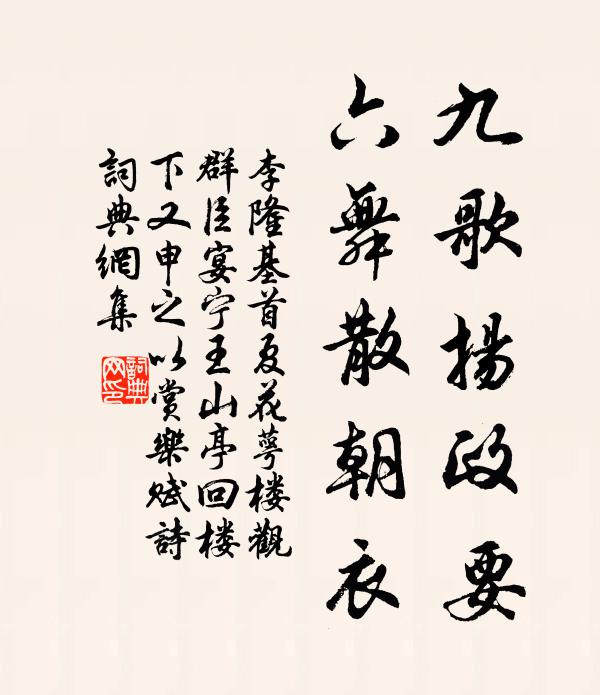 九歌揚政要
六舞散朝衣
李隆基首夏花萼楼觀
群臣宴宁王山亭回楼
下又申之以赏樂赋詩
詞典網集
詞典
网印